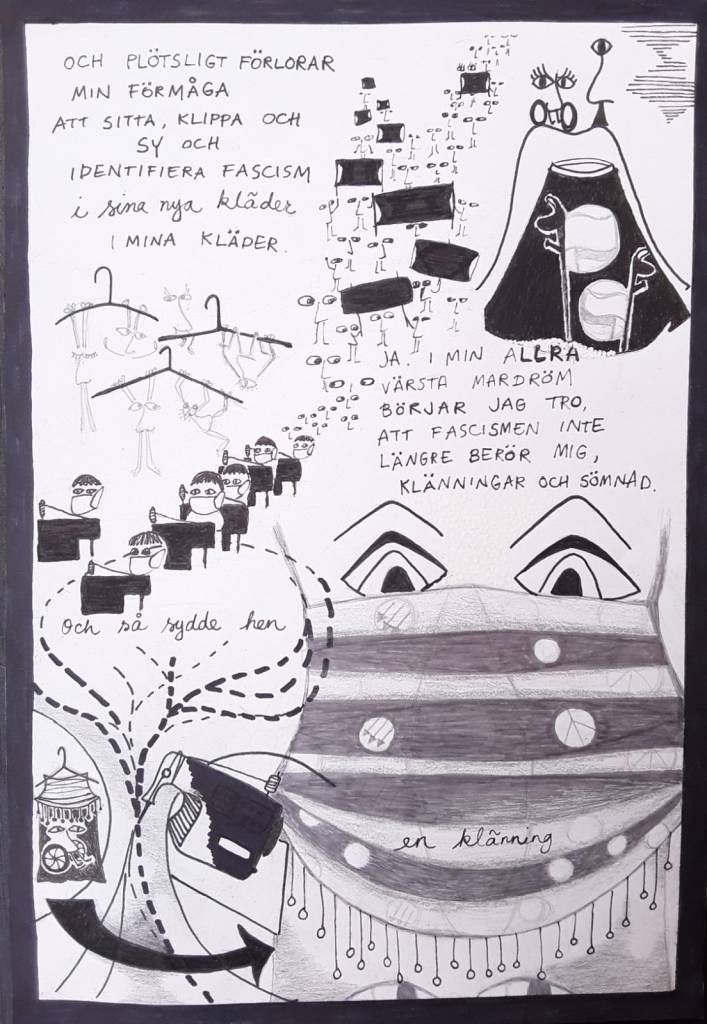 OCH PLÖTSLIGT FÖRLORAR
MIN FÖRMÅGA
ATT SITTA, KLIPPA OCH
SY OCH
IDENTIFIERA FASCISM
i sina nya kläder
I MINA KLÄDER.
JA. I MIN ALLRA
VÄRSTA MARDRÖM
BÖRJAR JAG TRO,
ATT FASCISMEN INTE
LÄNGRE BERÖR MIG,
KLÄNNINGAR OCH SÖMNAD.
och så sydde hen
en klänning